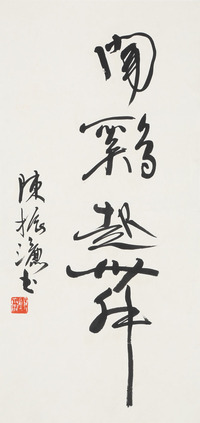 聞鷄起舞
陳振濂书